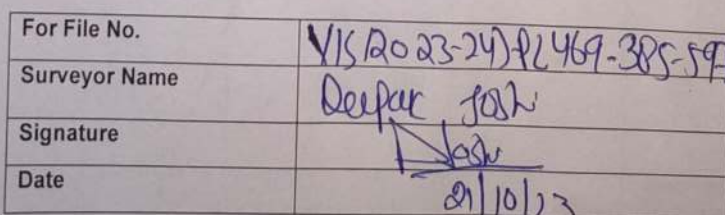 For File No. VIS(2023-24)-PL469-385-59
Surveyor Name Deepak Joshi
Signature DJoshi
Date 21/10/23